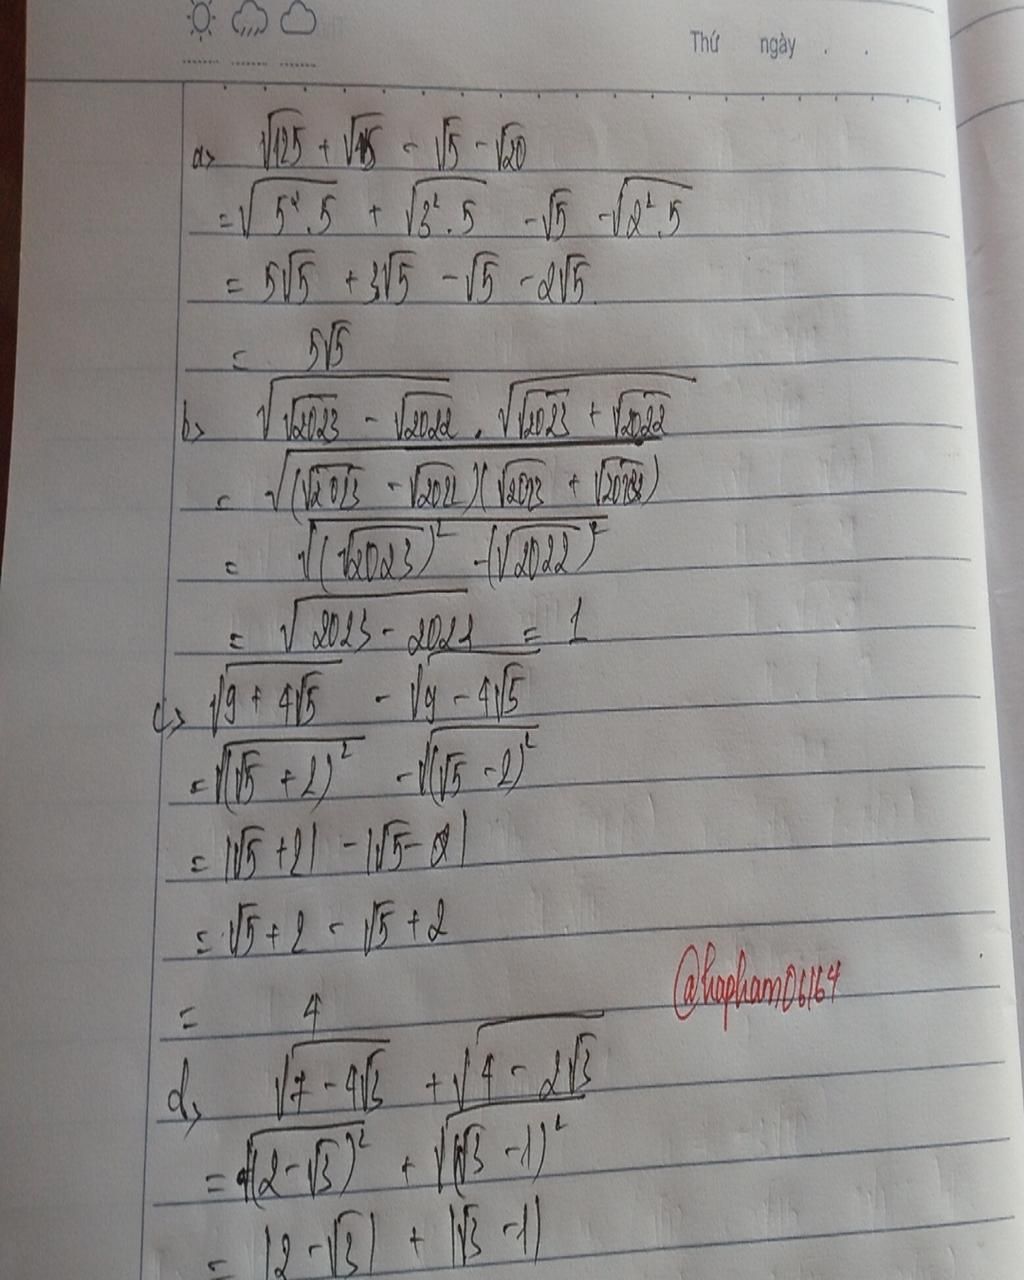 Thứ ngày . .
a> √125 + √45 - √5 - √20
= √(5².5) + √(3².5) - √5 - √(2².5)
= 5√5 + 3√5 - √5 - 2√5
= 5√5
b> √(√2023 - √2022) . √(√2023 + √2022)
= √((√2023 - √2022)(√2023 + √2022))
= √((√2023)² - (√2022)²)
= √(2023 - 2022) = 1
c> √(9 + 4√5) - √(9 - 4√5)
= √((√5 + 2)²) - √((√5 - 2)²)
= |√5 + 2| - |√5 - 2|
= √5 + 2 - √5 + 2
= 4
@hapham06164
d, √(7 - 4√3) + √(4 - 2√3)
= √((2 - √3)²) + √((√3 - 1)²)
= |2 - √3| + |√3 - 1|